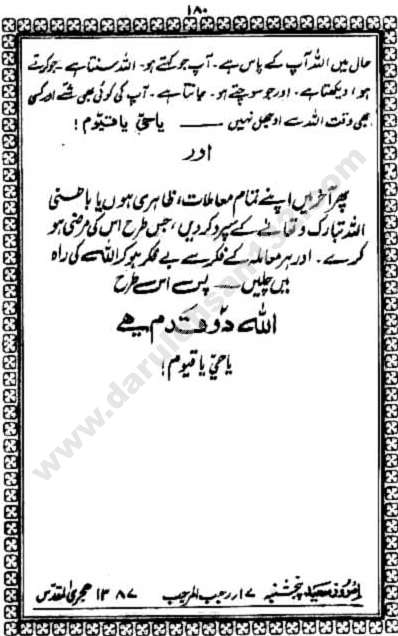 ۱۸۰
حال میں اللہ آپ کے پاس ہے۔ آپ جو کہتے ہو۔ اللہ سنتا ہے۔ جو کرتے
ہو، دیکھتا ہے۔ اور جو سوچتے ہو۔ جانتا ہے۔ آپ کی کوئی بھی شے اور کسی
بھی وقت اللہ سے اوجھل نہیں —— یا حیّ یا قیّوم!
اور
پھر آخر میں اپنے تمام معاملات، ظاہری ہوں یا باطنی
اللہ تبارک و تعالیٰ کے سپرد کر دیں، جس طرح اس کی مرضی ہو
کرے۔ اور ہر معاملہ کے فکر سے بے فکر ہو کر اللہ کی راہ
میں چلیں —— پس اس طرح
اللہ دو قدم ہے
یا حیّ یا قیوم!
امروز سعید پنجشنبہ ۱۷ رجب المرجب ۱۳۸۷ ہجری المقدس
www.darulehsan430.com